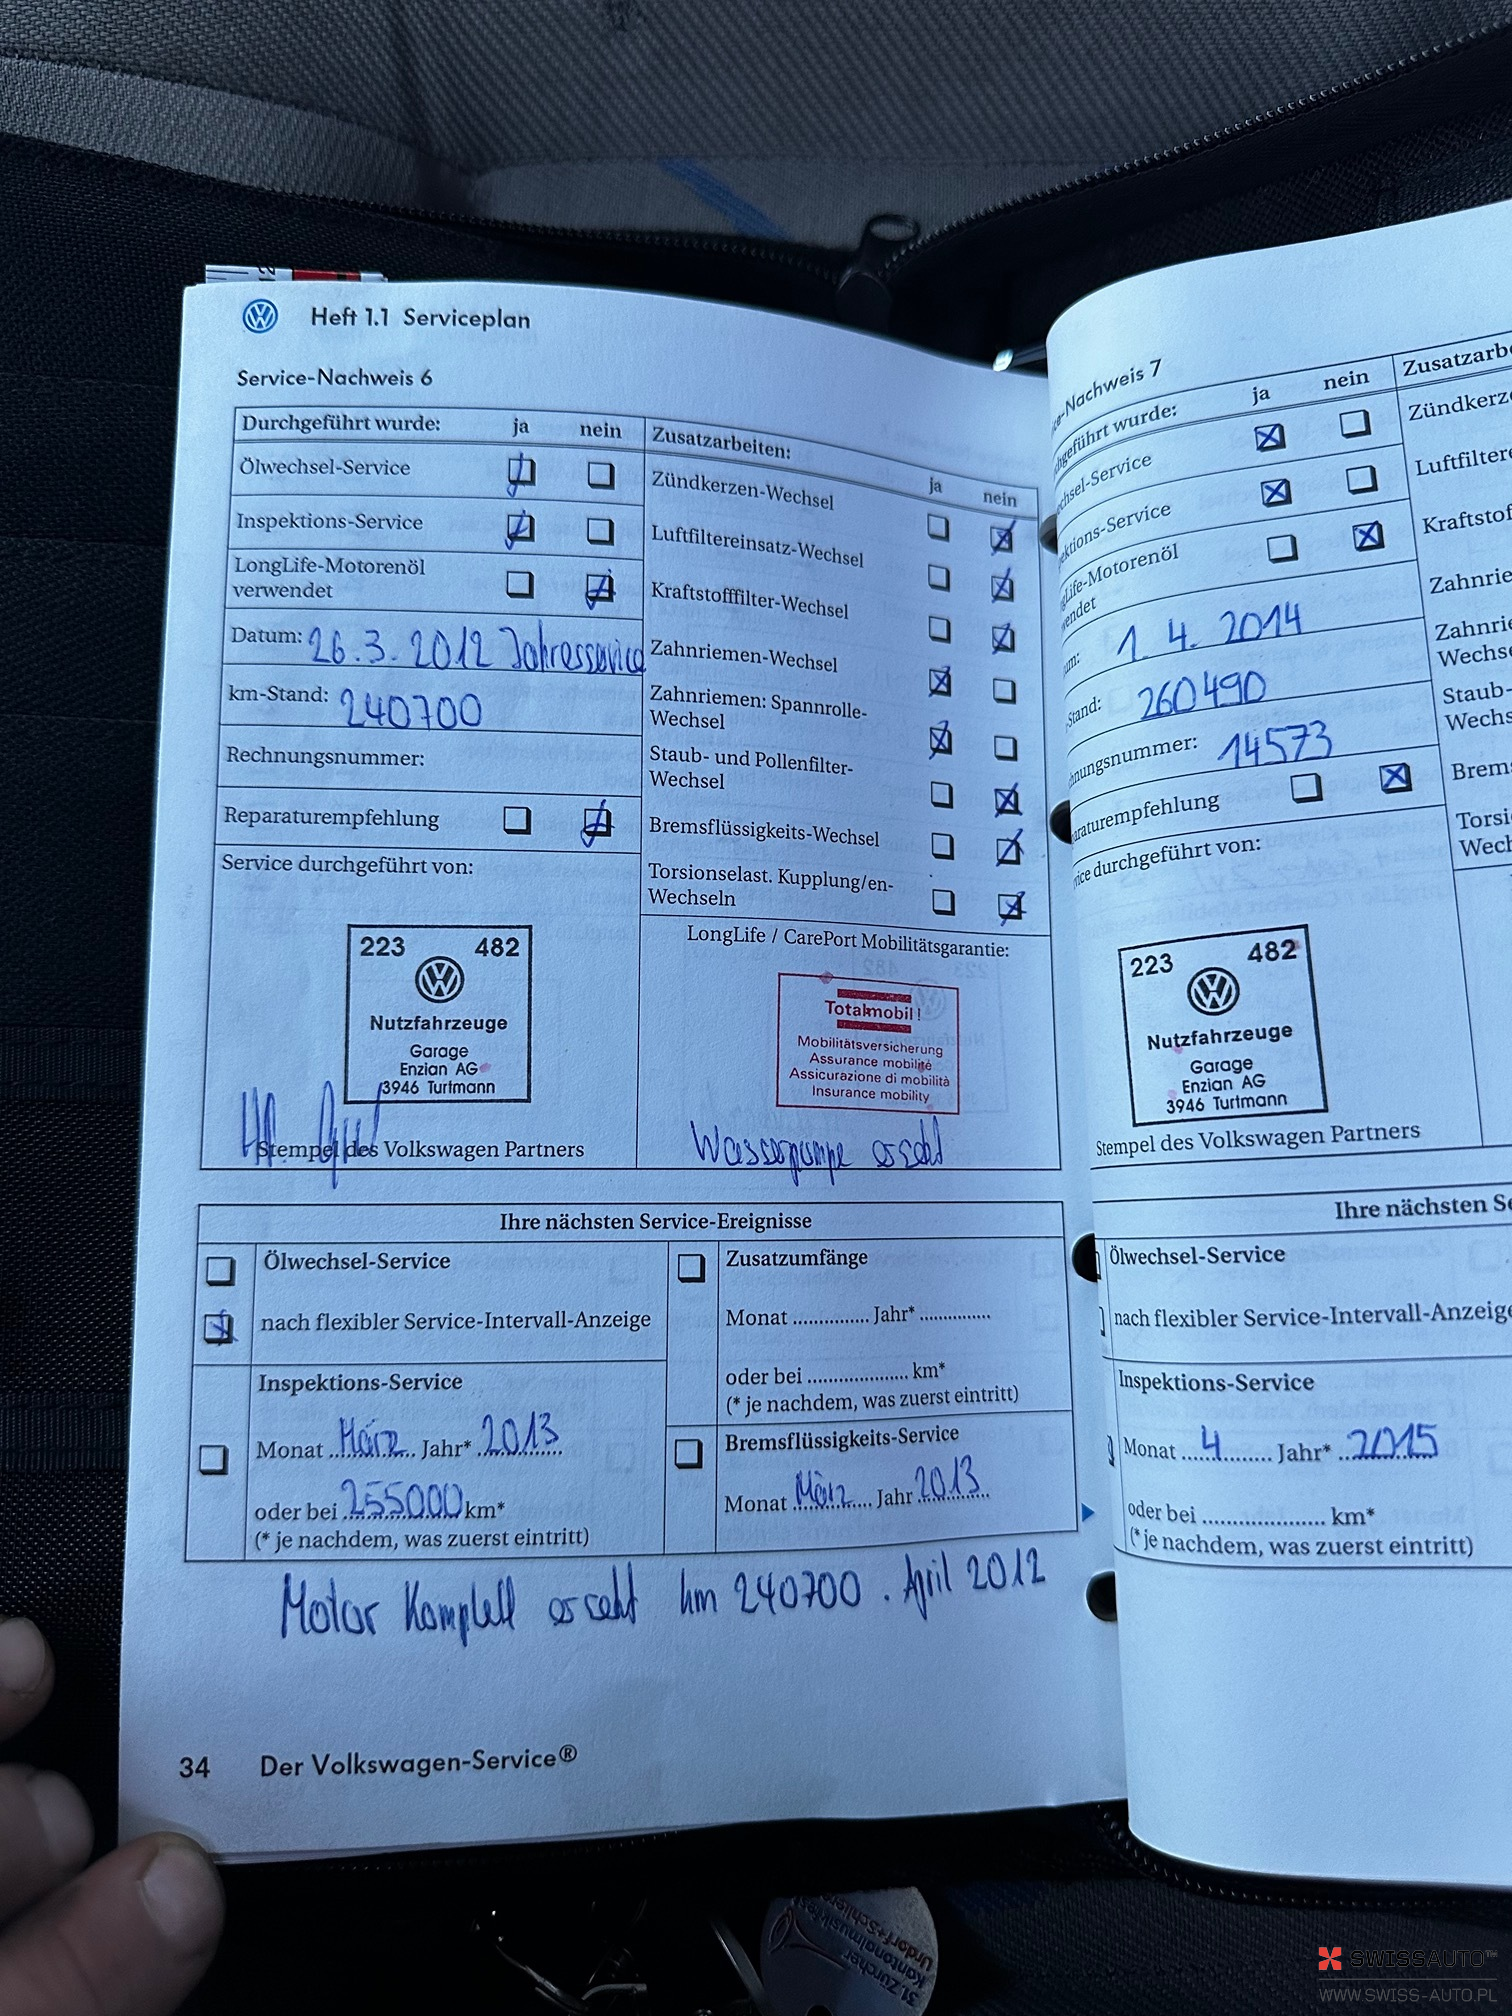 Heft 1.1 Serviceplan
Service-Nachweis 6
Durchgeführt wurde: ja nein
Ölwechsel-Service
Inspektions-Service
LongLife-Motorenöl
verwendet
Datum: 26.3.2012 Jahresservice
km-Stand: 240700
Rechnungsnummer:
Reparaturempfehlung
Service durchgeführt von:
223 482
Nutzfahrzeuge
Garage
Enzian AG
3946 Turtmann
Stempel des Volkswagen Partners
Zusatzarbeiten:
ja nein
Zündkerzen-Wechsel
Luftfiltereinsatz-Wechsel
Kraftstofffilter-Wechsel
Zahnriemen-Wechsel
Zahnriemen: Spannrolle-
Wechsel
Staub- und Pollenfilter-
Wechsel
Bremsflüssigkeits-Wechsel
Torsionselast. Kupplung/en-
Wechseln
LongLife / CarePort Mobilitätsgarantie:
Totalmobil!
Mobilitätsversicherung
Assurance mobilité
Assicurazione di mobilità
Insurance mobility
Wasserpumpe ersetzt
Ihre nächsten Service-Ereignisse
Ölwechsel-Service
nach flexibler Service-Intervall-Anzeige
Inspektions-Service
Monat März Jahr* 2013
oder bei 255000 km*
(* je nachdem, was zuerst eintritt)
Zusatzumfänge
Monat ............... Jahr* ...............
oder bei ..................... km*
(* je nachdem, was zuerst eintritt)
Bremsflüssigkeits-Service
Monat März Jahr 2013
Motor Komplett ersetzt km 240700. April 2012
34 Der Volkswagen-Service®
-Nachweis 7
geführt wurde: ja nein
chsel-Service
ektions-Service
gLife-Motorenöl
wendet
um: 1. 4. 2014
-Stand: 260490
hnungsnummer: 14573
araturempfehlung
vice durchgeführt von:
223 482
Nutzfahrzeuge
Garage
Enzian AG
3946 Turtmann
Stempel des Volkswagen Partners
Zusatzarb
Zündkerz
Luftfiltere
Kraftstof
Zahnrie
Zahnrie
Wechse
Staub-
Wechs
Brems
Torsi
Wech
Ihre nächsten Se
Ölwechsel-Service
nach flexibler Service-Intervall-Anzeige
Inspektions-Service
Monat 4 Jahr* 2015
oder bei ..................... km*
(* je nachdem, was zuerst eintritt)
31. Zürcher
Kantonalmusikfest
Urdorf+Schlie
SWISSAUTO™
WWW.SWISS-AUTO.PL